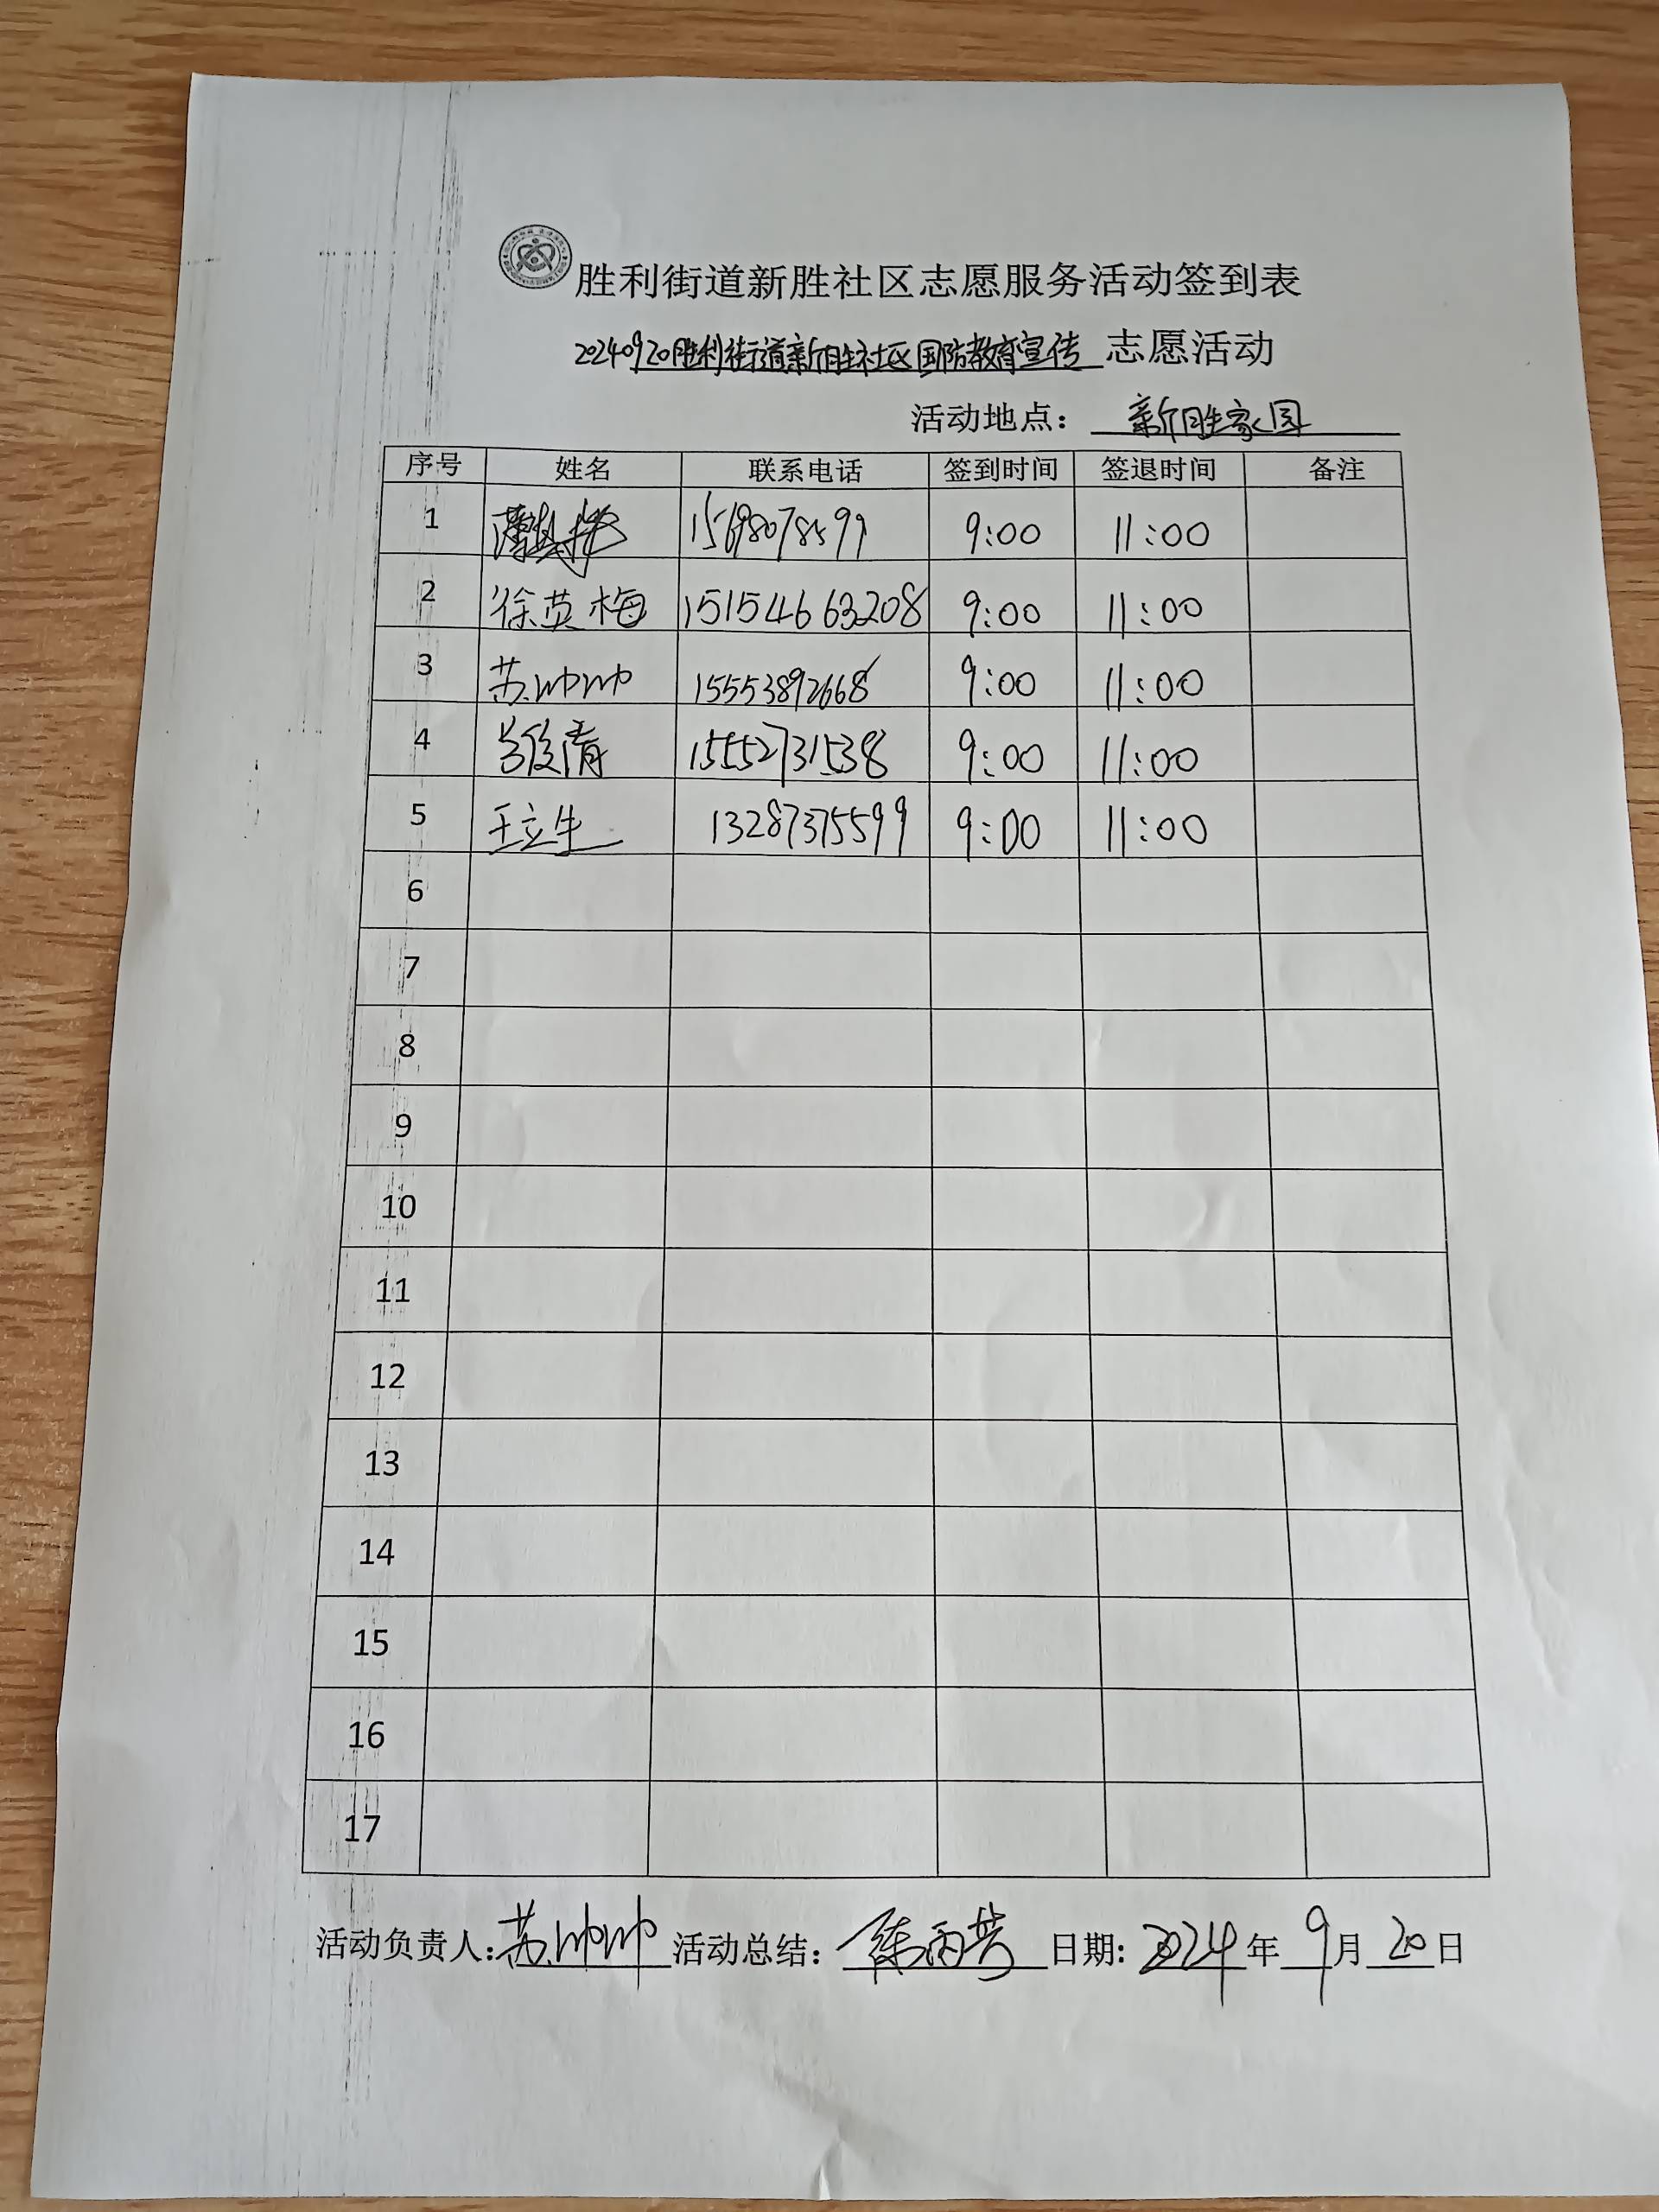 胜利街道新胜社区志愿服务活动签到表
20240920胜利街道新胜社区国防教育宣传 志愿活动
活动地点: 新胜家园
序号 姓名 联系电话 签到时间 签退时间 备注
1 15698078599 9:00 11:00
2 徐英梅 15154663208 9:00 11:00
3 苏帅帅 15553892668 9:00 11:00
4 15552731538 9:00 11:00
5 王立生 13287375599 9:00 11:00
6
7
8
9
10
11
12
13
14
15
16
17
活动负责人:苏帅帅 活动总结: 陈丙芳 日期: 2024年 9月 20日